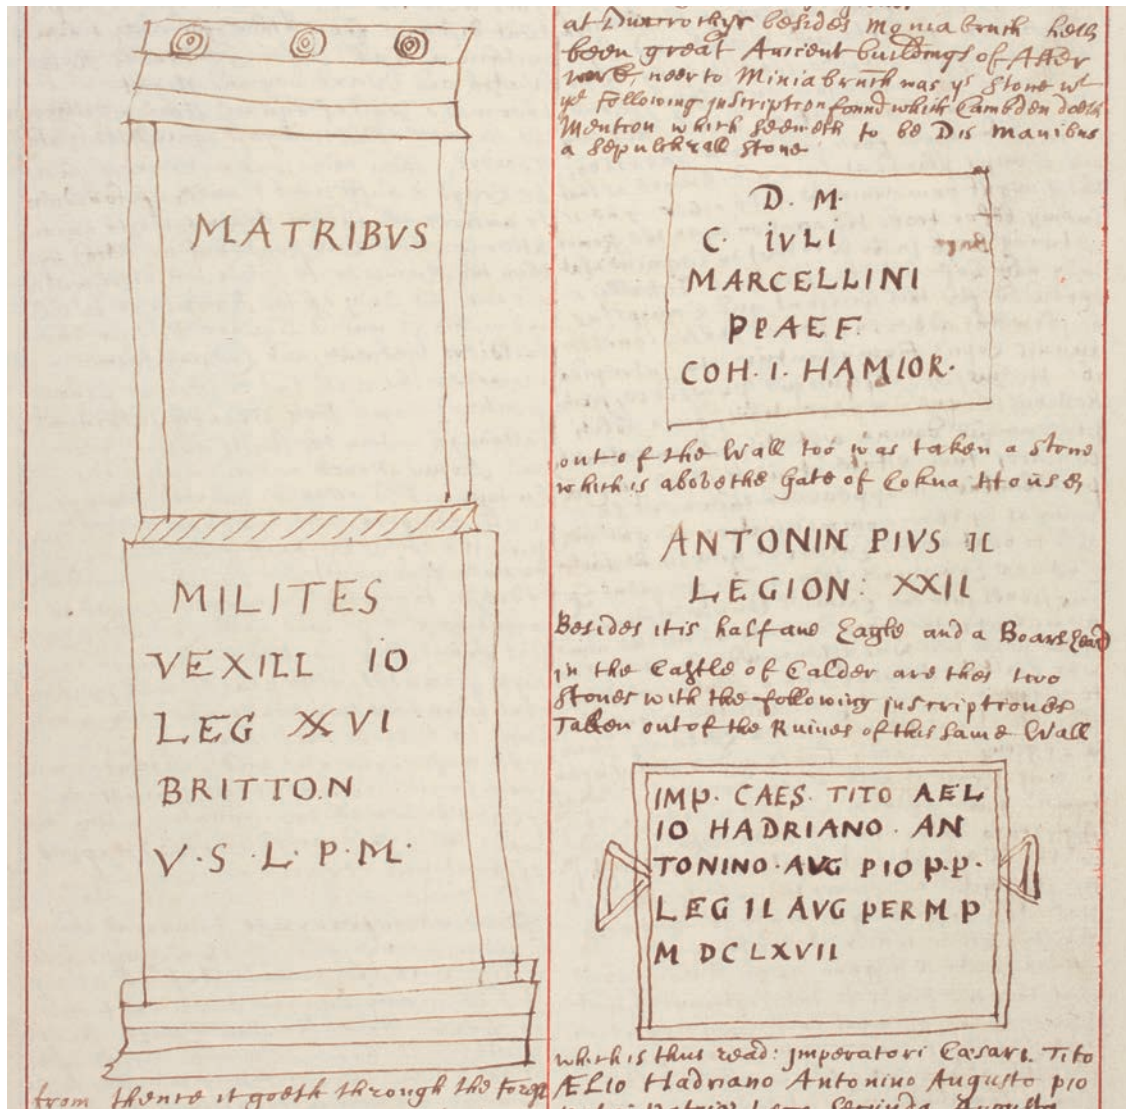 MATRIBVS
MILITES
VEXILL IO
LEG XXVI
BRITTON
V·S·L·P·M·
from thence it goeth through the
at besides moniabruch heth
been great Ancient buildings of After
neer to Miniabruch was yᵉ stone wᵗ
yᵉ following inscription found which Cambden doeth
Mention which seemeth to be Dis manibus
a sepulchrall stone
D. M.
C. IVLI
MARCELLINI
PPAEF.
COH. I. HAMIOR.
out of the wall too was taken a stone
which is above the gate of Cokna House
ANTONIN PIVS II
LEGION: XXII
Besides it is half ane Eagle and a Boars head
in the Castle of Calder are thes two
stones with the following inscriptiones
Taken out of the Ruines of this same Wall
IMP. CAES. TITO AEL
IO HADRIANO. AN
TONINO. AVG PIO P.P.
LEG II AVG PER M P
M DCLXVII
which is thus read: Imperatori Cæsari. Tito
ÆLio Hadriano Antonino Augusto pio